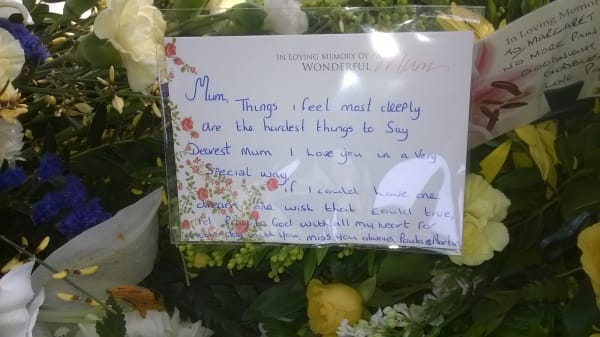 IN LOVING MEMORY OF A
WONDERFUL Mum
Mum, Things i feel most deeply
are the hardest things to Say
Dearest Mum I Love you in a Very
Special way.
If I could have one
dream one wish that could true,
I'd Pray to God with all my heart for
with you, miss you always, Paula & Martin
In Loving Memory
TO MARGARET
NO MORE PAIN
GOODNIGHT,
GODBLESS
LOVE